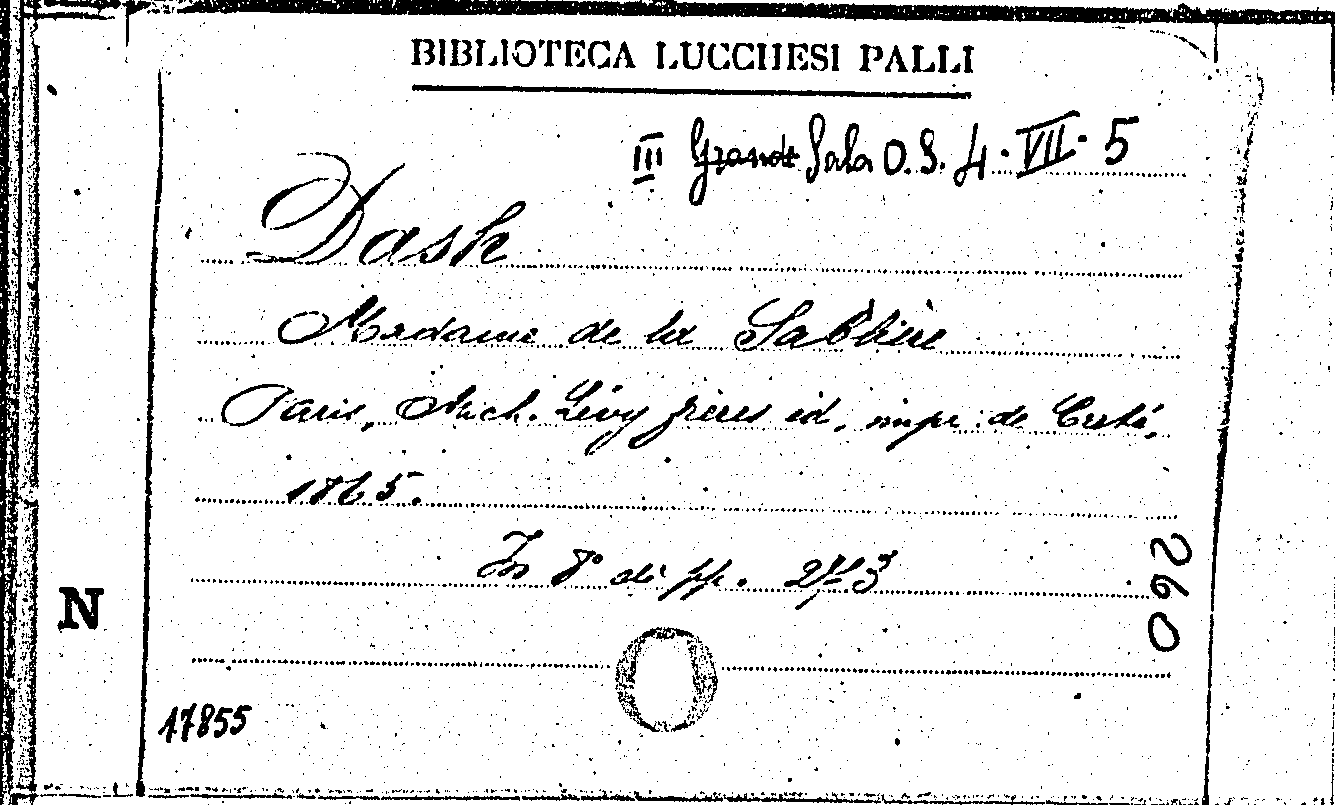 BIBLIOTECA LUCCHESI PALLI
III Grande Sala O.S. 4. VII. 5
Dash
Madame de la Sablière
Paris, Mich. Lévy frères éd, impr. de Creté,
1865.
In 8° di pp. 273
260
N
17855